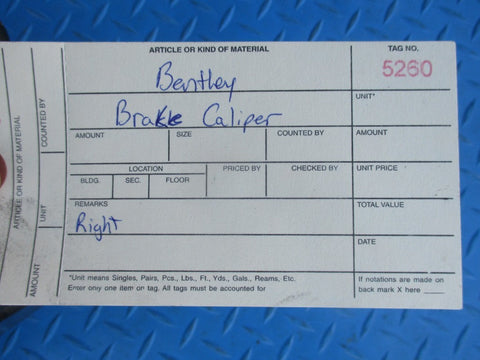 ARTICLE OR KIND OF MATERIAL
TAG NO.
Bentley
5260
Brake Caliper
UNIT*
AMOUNT
SIZE
COUNTED BY
AMOUNT
LOCATION
PRICED BY
CHECKED BY
UNIT PRICE
BLDG.
SEC.
FLOOR
REMARKS
TOTAL VALUE
Right
DATE
*Unit means Singles, Pairs, Pcs., Lbs., Ft., Yds., Gals., Reams, Etc.
Enter only one item on tag. All tags must be accounted for
If notations are made on
back mark X here ____
ARTICLE OR KIND OF MATERIAL
COUNTED BY
UNIT
AMOUNT